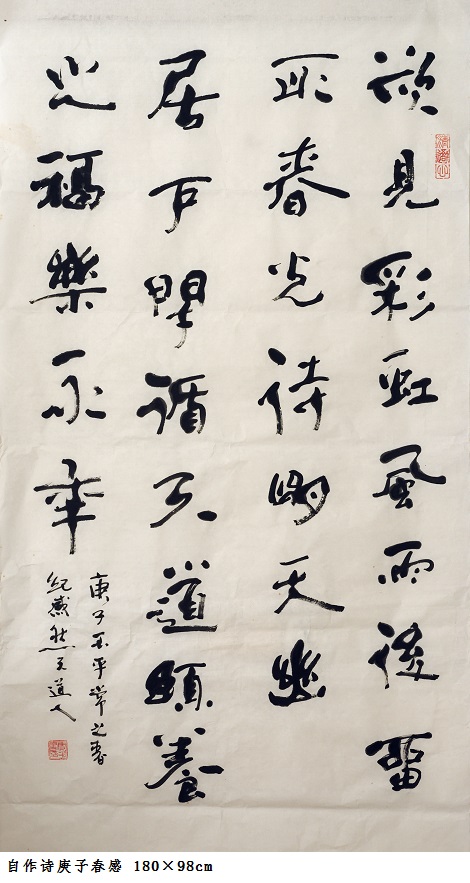 欲見彩虹風雨後留
取春光待明天幽
居户閒循天道頤養
之福樂永年
庚子不平常之春
紀然天道人
自作诗庚子春感 180×98cm